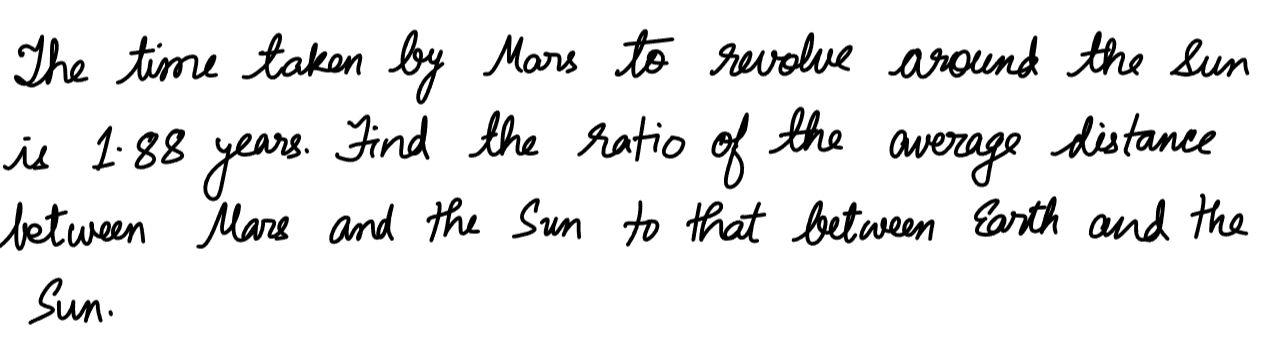 The time taken by Mars to revolve around the Sun
is 1.88 years. Find the ratio of the average distance
between Mars and the Sun to that between Earth and the
Sun.